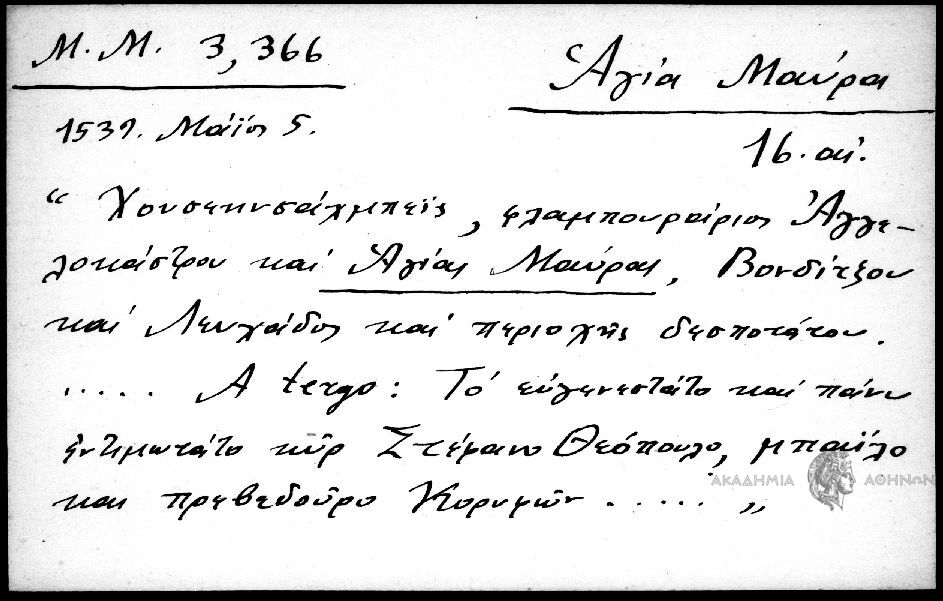 Μ. Μ. 3,366
Ἁγία Μαύρα
1539. Μάϊος 5.
16. αἰ.
“ Χουσεηνσάχμπεϊς, φλαμπουράριος Ἀγγε-
λοκάστρου καὶ Ἁγίας Μαύρας, Βονδίτζου
καὶ Λευκάδος καὶ περιοχῆς δεσποτάτου.
..... A tergo: Τὸ εὐγενεστάτο καὶ πάνυ
ἐντιμωτάτο κῦρ Στέφανο Θεόπουλο, μπαΐλο
και πρεβεδοῦρο Κορυφῶν ..... „
ΑΚΑΔΗΜΙΑ ΑΘΗΝΩΝ